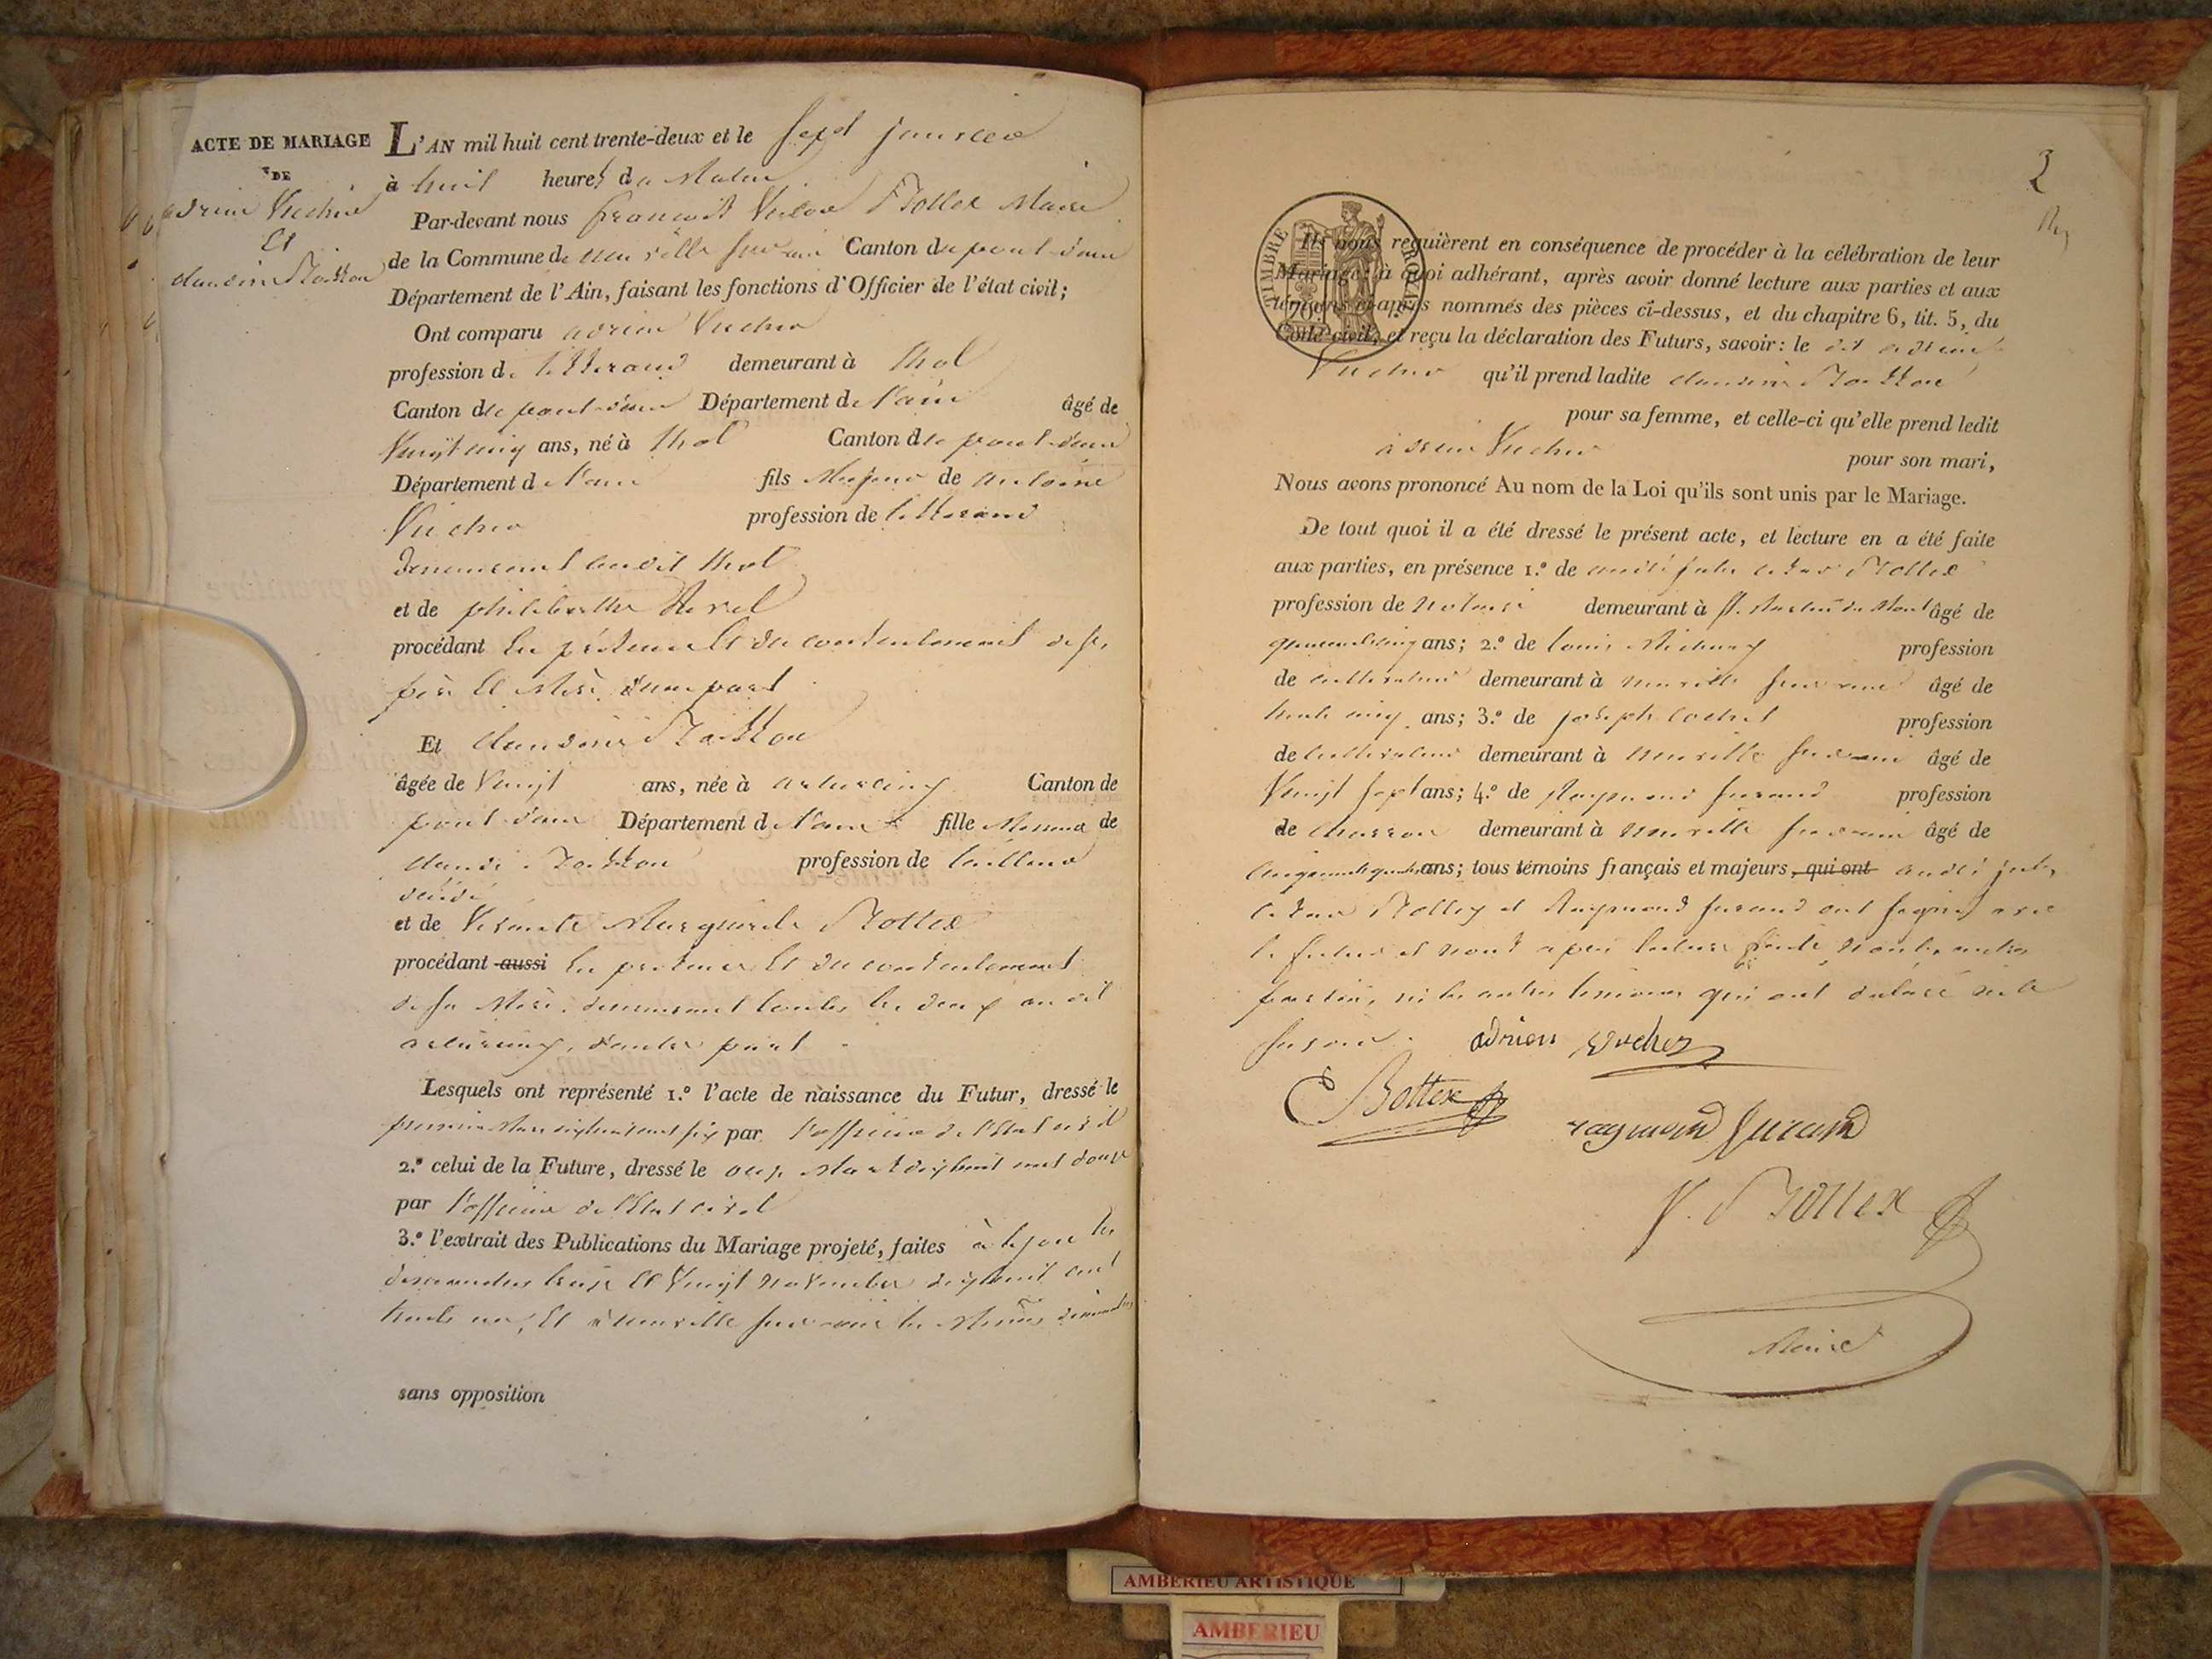 ACTE DE MARIAGE
DE
adrien Vucher
Et
claudine Bottex
L'AN mil huit cent trente-deux et le sept janvier
à huit heures du Matin
Par-devant nous francois Victor Bottex Maire
de la Commune de neuville sur ain Canton de pont-d'ain
Département de l'Ain, faisant les fonctions d'Officier de l'état civil;
Ont comparu adrien Vucher
profession de demeurant à thol
Canton de pont-d'ain Département de l'ain âgé de
Vingt cinq ans, né à thol Canton de pont-d'ain
Département de l'ain fils Majeur de antoine
Vucher profession de
demeurant audit thol
et de philiberthe
procédant En présence Et du consentement de ses
père Et Mère d'une part
Et claudine
âgée de Vingt ans, née à Canton de
pont-d'ain Département de l'ain fille Mineure de
claude profession de tailleur
décédé
et de Marguerite Bottex
procédant aussi En présence Et du consentement
de sa Mère, demeurant toutes les deux au dit
d'autre part
Lesquels ont représenté 1.° l'acte de naissance du Futur, dressé le
premier Mars dix huit cent six par l'officier de l'Etat civil
2.° celui de la Future, dressé le onze Mars dix huit cent douze
par l'officier de l'Etat civil
3.° l'extrait des Publications du Mariage projeté, faites à les
dimanches treize Et Vingt novembre dix huit cent
trente un, Et à neuville sur ain les Mêmes dimanches
sans opposition
2
TIMBRE ROYAL
Ils nous requièrent en conséquence de procéder à la célébration de leur
Mariage; à quoi adhérant, après avoir donné lecture aux parties et aux
témoins ci-après nommés des pièces ci-dessus, et du chapitre 6, tit. 5, du
Code civil, et reçu la déclaration des Futurs, savoir: le dit adrien
Vucher qu'il prend ladite claudine
pour sa femme, et celle-ci qu'elle prend ledit
adrien Vucher pour son mari,
Nous avons prononcé Au nom de la Loi qu'ils sont unis par le Mariage.
De tout quoi il a été dressé le présent acte, et lecture en a été faite
aux parties, en présence 1.° de andré jules Bottex
profession de notaire demeurant à St. Martin du Mont âgé de
ans; 2.° de louis profession
de cultivateur demeurant à neuville sur ain âgé de
trente cinq ans; 3.° de joseph cochet profession
de cultivateur demeurant à neuville sur ain âgé de
Vingt sept ans; 4.° de Raymond profession
de demeurant à neuville sur ain âgé de
cinquante quatre ans; tous témoins français et majeurs, qui ont andré jules
Bottex et Raymond ont signé avec
le futur et nous après lecture faite, non les autres
parties, ni les autres témoins qui ont déclaré ne le
savoir.
adrien vucher
Bottex
raymond
V. Bottex
Maire
AMBERIEU ARTISTIQUE
AMBERIEU